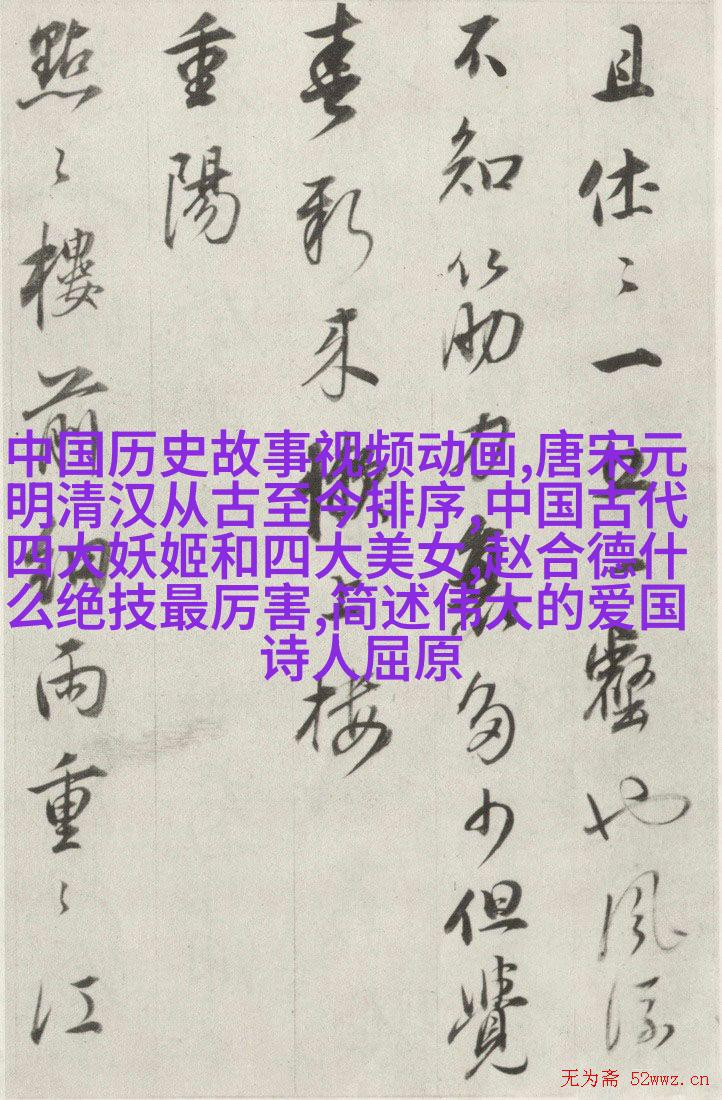 且休〻一丘一壑也風流
不知筋力衰多少但覺
春新来懶上楼
重陽
點〻樓前細雨重〻江
中国历史故事视频动画,唐宋元
明清汉从古至今排序,中国古代
四大妖姬和四大美女,赵合德什
么绝技最厉害,简述伟大的爱国
诗人屈原
无为斋 52wwz.cn